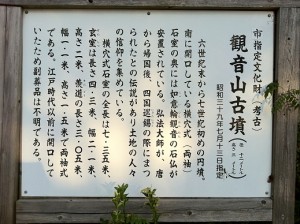 市指定文化財(考古)
觀音山古墳
昭和三十九年七月十三日指定
六世紀末から七世紀初めの円墳。
南に開口している横穴式(両袖)
石室の奥には如意輪観音の石仏が
安置されている。弘法大師が、唐
から帰国後、四国巡錫の際にまつ
られたとの伝説があり土地の人々
の信仰を集めている。
横穴式石室の全長は七・三五米、
玄室は長さ四・三米、幅二・一米、
高さ二米、羨道の長さ三・〇五米、
幅一・一米、高さ一・五米で両袖式
である。江戸時代以前に開口して
いたため副葬品は不明である。